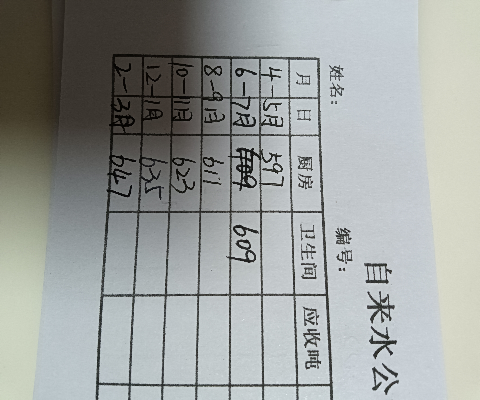 自来水公
姓名： 编号：
月 日 厨房 卫生间 应收吨
4-5月 597
6-7月 609
8-9月 611
10-11月 623
12-1月 635
2-3月 647